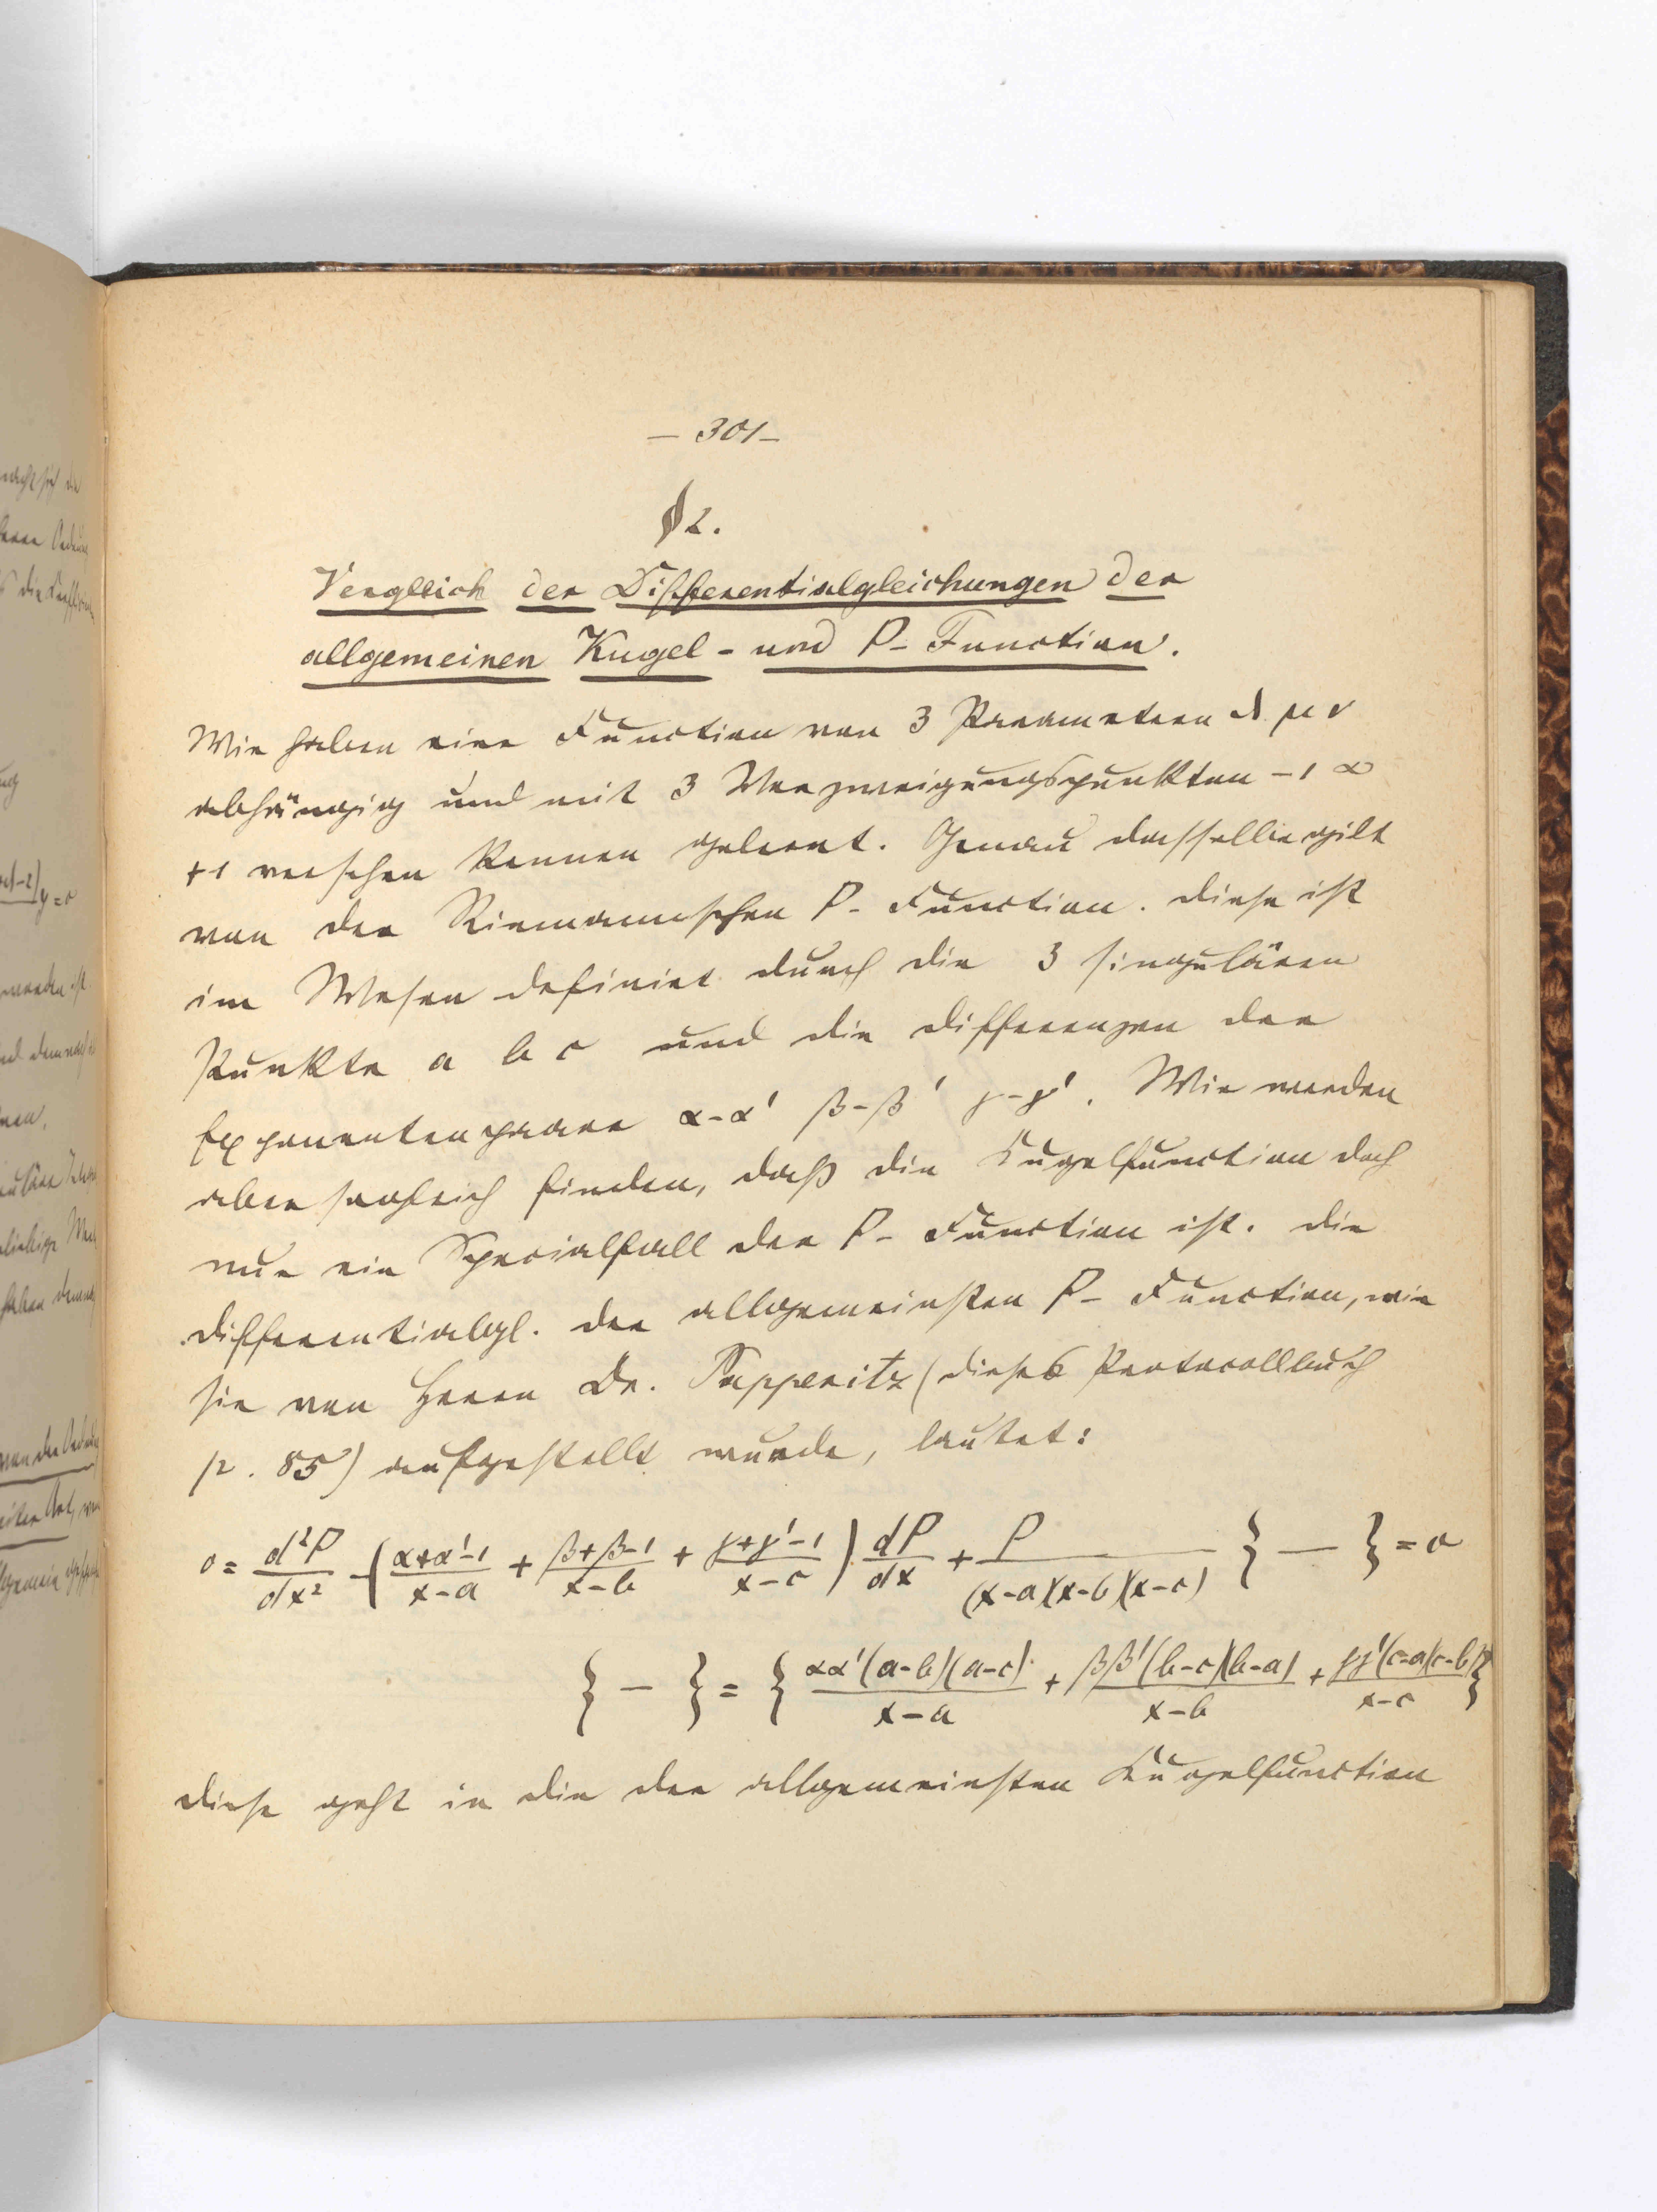 – 301 –
§ 2.
Vergleich der Differentialgleichungen der
allgemeinen Kugel- und P-Function.
Wir haben eine Function von 3 Parametern λ μ ν
abhängig und mit 3 Verzweigungspunkten −1 ∞
+1 versehen kennen gelernt. Genau dasselbe gilt
von der Riemannschen P-Function. Diese ist
im Wesen definirt durch die 3 singulären
Punkte a b c und die Differenzen der
Exponentenpaare α-α' β-β' γ-γ'. Wir werden
aber sogleich finden, daß die Kugelfunction doch
nur ein Specialfall der P-Function ist. Die
Differentialgl. der allgemeinsten P-Function, wie
sie von Herrn Dr. Papperitz (dieses Protocollbuch
p. 85) aufgestellt wurde, lautet:
0 = d²P/dx² - (α+α'-1/x-a + β+β-1/x-b + γ+γ'-1/x-c) · dP/dx + P/(x-a)(x-b)(x-c) { — } = 0
{ — } = { αα'(a-b)(a-c)/x-a + ββ'(b-c)(b-a)/x-b + γγ'(c-a)(c-b)/x-c }
Diese geht in die der allgemeinsten Kugelfunction